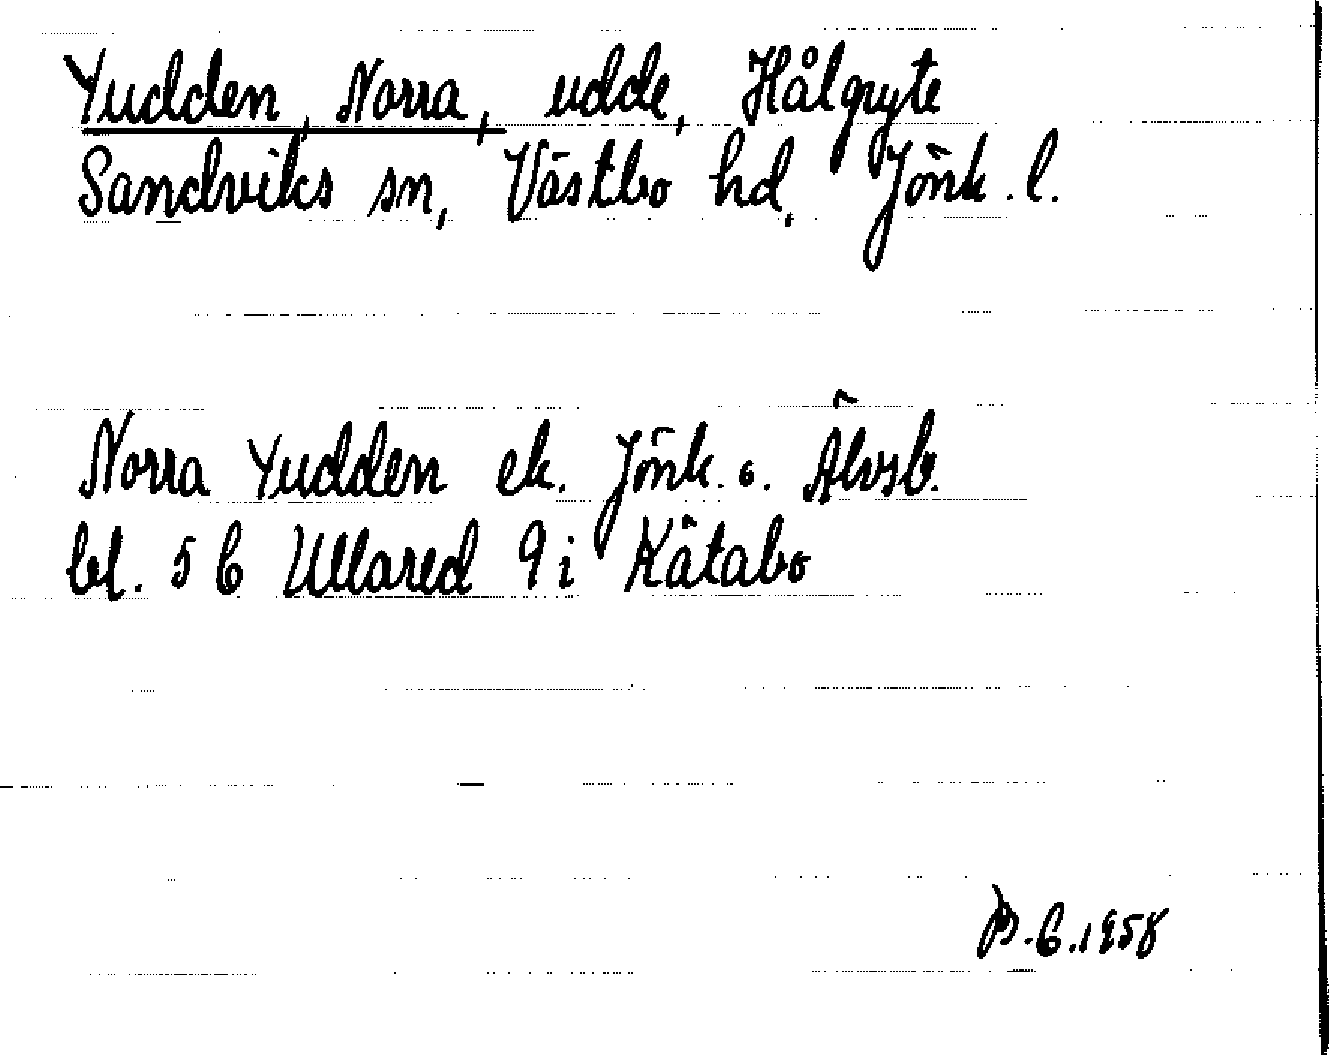 Yudden, Norra, udde, Hålgryte
Sandviks sn, Västbo hd, Jönk. l.
Norra Yudden ek. Jönk. o. Älvsb.
bl. 5 C Ullared 9 i Kåtabo
B. C. 1958